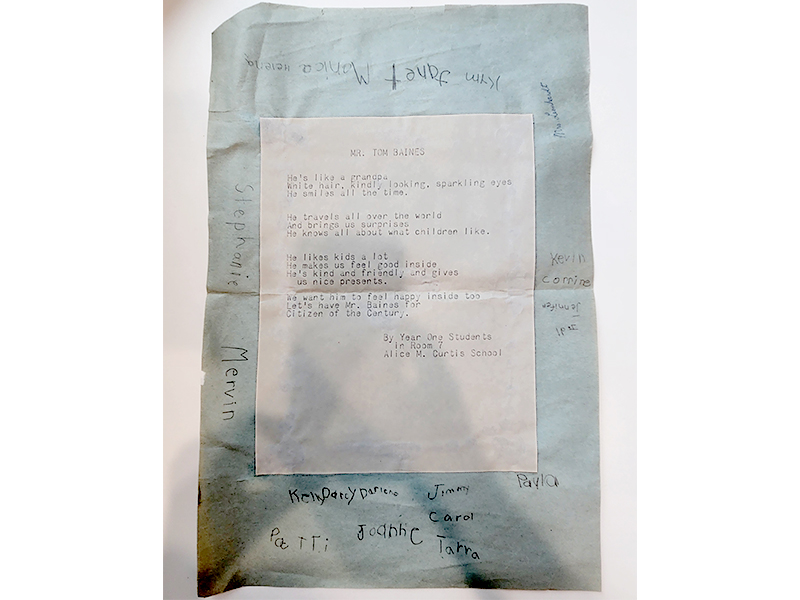 Kym Janet Monica Helena
MR. TOM BAINES
He's like a grandpa
White hair, kindly looking, sparkling eyes
He smiles all the time.
He travels all over the world
And brings us surprises
He knows all about what children like.
He likes kids a lot
He makes us feel good inside
He's kind and friendly and gives
us nice presents.
We want him to feel happy inside too
Let's have Mr. Baines for
Citizen of the Century.
By Year One Students
in Room 7
Alice M. Curtis School
Stephanie
Mervin
Kevin
Corrine
Jennifer
Paula
Kelly Darcy Darlene
Jimmy
Carol
Patti
Joanne C
Tarra